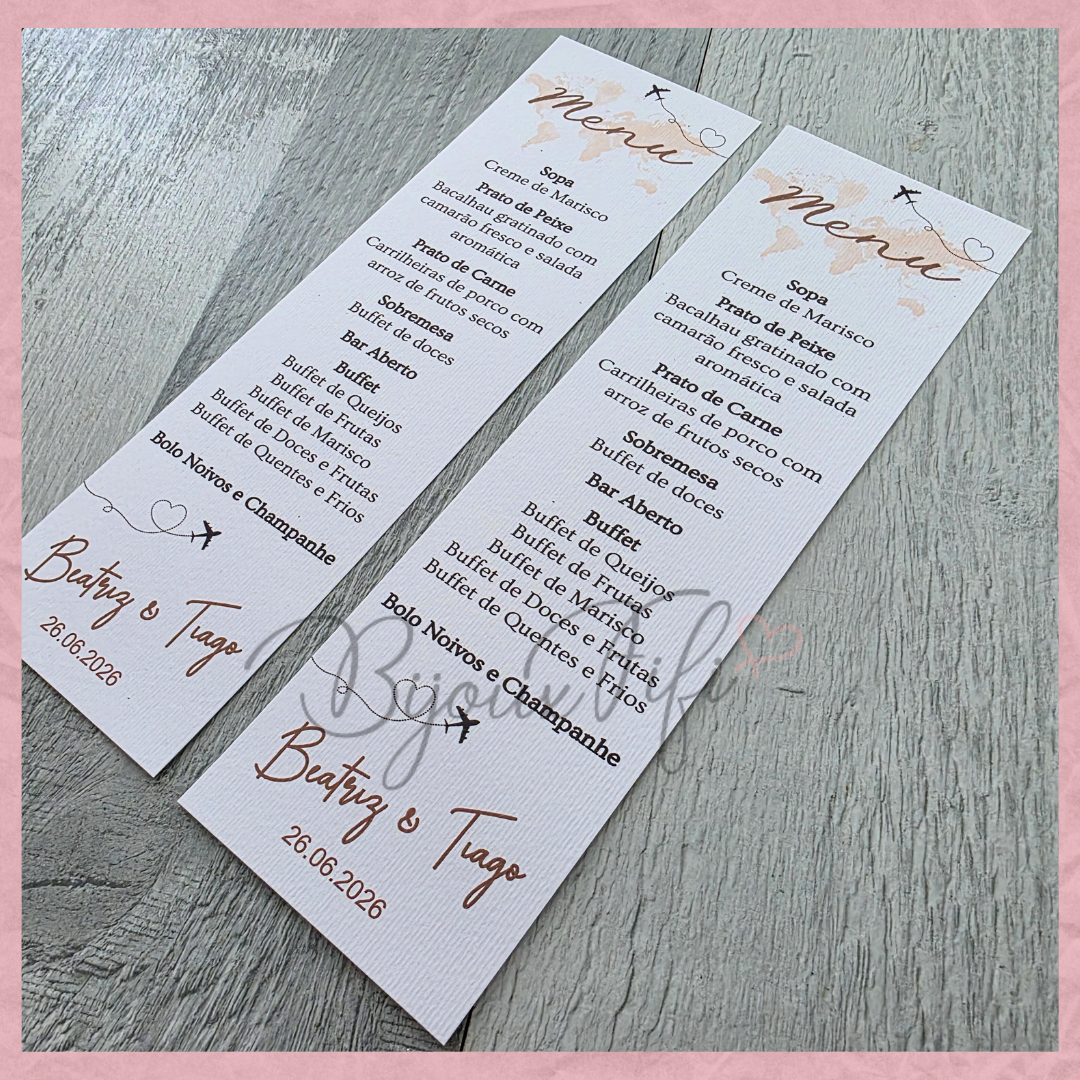 Menu
Sopa
Creme de Marisco
Prato de Peixe
Bacalhau gratinado com
camarão fresco e salada
aromática
Prato de Carne
Carrilheiras de porco com
arroz de frutos secos
Sobremesa
Buffet de doces
Bar Aberto
Buffet
Buffet de Queijos
Buffet de Frutas
Buffet de Marisco
Buffet de Doces e Frutas
Buffet de Quentes e Frios
Bolo Noivos e Champanhe
Beatriz & Tiago
26.06.2026
Menu
Sopa
Creme de Marisco
Prato de Peixe
Bacalhau gratinado com
camarão fresco e salada
aromática
Prato de Carne
Carrilheiras de porco com
arroz de frutos secos
Sobremesa
Buffet de doces
Bar Aberto
Buffet
Buffet de Queijos
Buffet de Frutas
Buffet de Marisco
Buffet de Doces e Frutas
Buffet de Quentes e Frios
Bolo Noivos e Champanhe
Beatriz & Tiago
26.06.2026
Bijoux Fifi